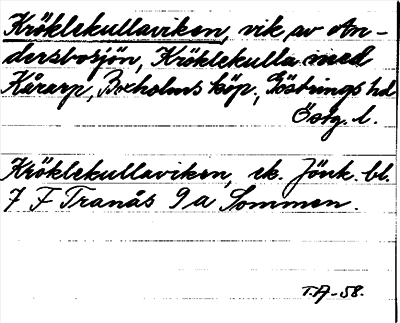 Kröklekullaviken, vik av An-
dersbosjön, Kröklekulla med
Kårarp, Boxholms köp., Göstrings hd
Östg. l.
Kröklekullaviken, ek. Jönk. bl.
7 F Tranås 9 a Sommen.
T.A-58.